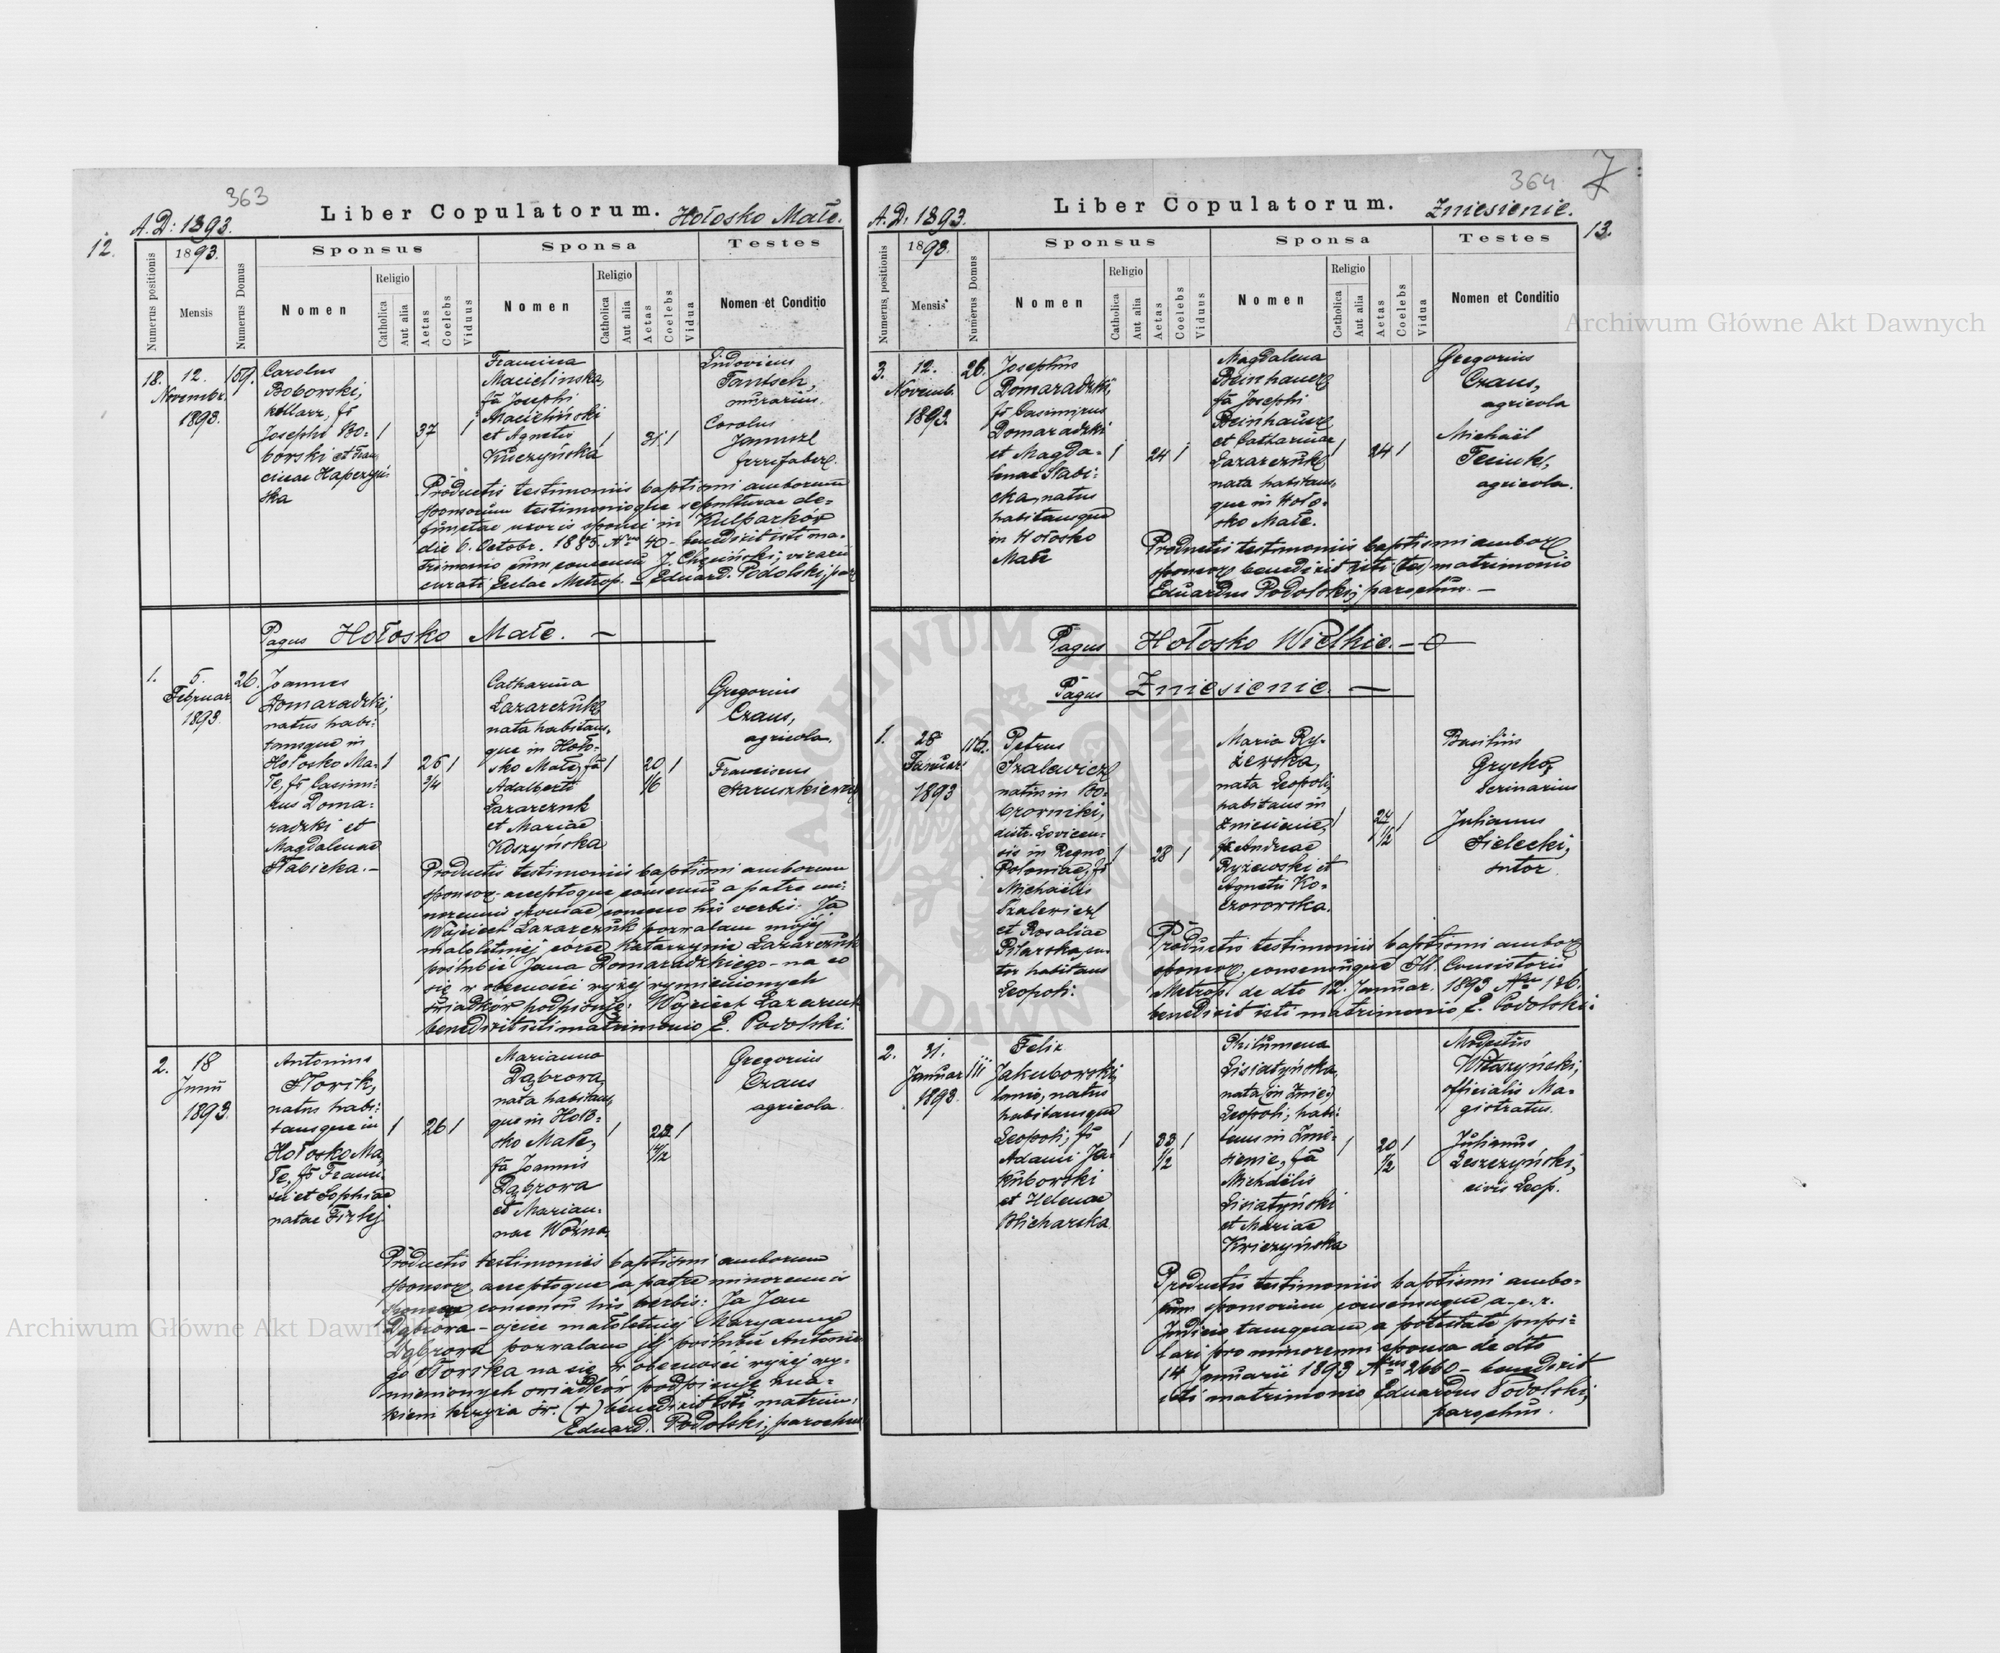 363
Liber Copulatorum. Hołosko Małe.
A. D: 1893.
12.
Numerus positionis
1893.
Mensis
Numerus Domus
Sponsus
Nomen
Religio
Catholica
Aut alia
Aetas
Coelebs
Viduus
Sponsa
Nomen
Religio
Catholica
Aut alia
Aetas
Coelebs
Vidua
Testes
Nomen et Conditio
18. 12. Novembr. 1893. 159.
Carolus
Boborski,
fs
Josephi Bo-
borski et Fran-
ciscae
ska
1 37 1
Francisca
Macielinska,
fa Josephi
Macieliński
et Agnetis
Kuczyńska
1 31 1
Ludovicus
Tantsch,
murarius.
Carolus
Janusz
ferrifaber.
Productis testimoniis baptismi amborum
sponsorum testimonioque sepulturae de-
functae uxoris sponsi in Kulparków
die 6. Octobr. 1885. Nro 40 - benedixit isti ma-
trimonio cum consensu J. Chęciński, vicarii
curati Ecclae Metrop. - Eduard. Podolski, par.
Pagus Hołosko Małe. —
1. 5. Februar 1893 26.
Joannes
Domaradzki,
natus habi-
tansque in
Hołosko Ma-
łe, fs Casimi-
rus Doma-
radzki et
Magdalenae
Słabicka. -
1 25 3/4 1
Catharina
Łazarczuk
nata habitans-
que in Hoło-
sko Małe, fa
Adalberti
Łazarczuk
et Mariae
Koszyńska
1 20 1/6 1
Gregorius
Czaus,
agricola.
Franciscus
Staruszkiewicz
Productis testimoniis baptismi amborum
sponsor. acceptoque consensu a patre mi-
norennis sponsae consensu his verbis: Ja
Wojciech Łazarczuk pozwalam mojéj
małoletniej córce Katarzynie Łazarczuk
poślubić Jana Domaradzkiego - na co
się w obecności wyżej wymienionych
świadków podpisuję: Wojciech Łazarczuk
benedixit isti matrimonio E. Podolski.
2. 18 Junii 1893.
Antonius
Słowik,
natus habi-
tansque in
Hołosko Ma-
łe, fs Franci-
sci et Sophiae
natae Firlej
1 26 1
Marianna
Dąbrowa,
nata habitans-
que in Hoło-
sko Małe,
fa Joannis
Dąbrowa
et Marian-
nae Woźna.
1 1
Gregorius
Czaus
agricola.
Productis testimoniis baptismi amborum
sponsor. acceptoque a patre minorennis
sponsae consensu his verbis: Ja Jan
Dąbrowa - ojciec małoletniéj Maryanny
Dąbrowa pozwalam jéj poślubić Antonie-
go Słowika na się w obecności wyżej wy-
mienionych świadków podpisuję zna-
kiem krzyża św. (+) benedixit isti matrim.
Eduard. Podolski, parochus
364 7
Liber Copulatorum. Zniesienie.
A. D. 1893.
13.
Numerus positionis
1893.
Mensis
Numerus Domus
Sponsus
Nomen
Religio
Catholica
Aut alia
Aetas
Coelebs
Viduus
Sponsa
Nomen
Religio
Catholica
Aut alia
Aetas
Coelebs
Vidua
Testes
Nomen et Conditio
3. 12. Novemb. 1893. 26.
Josephus
Domaradzki,
fs Casimirus
Domaradzki
et Magda-
lenae Słabi-
cka, natus
habitansque
in Hołosko
Małe
1 24 1
Magdalena
Beinhauer
fa Josephi
Beinhauer
et Catharinae
Łazarczuk
nata habitans-
que in Hoło-
sko Małe.
1 24 1
Gregorius
Czaus,
agricola
Michaël
agricola.
Productis testimoniis baptismi ambor.
sponsor. benedixit isti (tes) matrimonio
Eduardus Podolski, parochus. —
Pagus Hołosko Wielkie. — 0 —
Pagus Zniesienie. —
1. 28 Januar 1893
Petrus
Szalewicz
natus in
distr. Lovicen-
sis in Regno
Poloniae, fs
Michaëlis
Szalewicz
et Rosaliae
Pilarska, su-
tor habitans
Leopoli.
1 28 1
Maria Ry-
żewska,
nata Leopoli,
habitans in
Zniesienie,
fa Andreae
Ryżewski et
Agnetis Ko-
czorowska.
1 24 1/2 1
Basilius
Grycko,
Julianus
Sielecki,
sutor
Productis testimoniis baptismi ambor.
sponsor. consensuque Ill. Consistorii
Metrop. de dto 12. Januar. 1893 Nro 126.
benedixit isti matrimonio E. Podolski.
2. 31. Januar 1893. 111
Felix
Jakuborski,
lanio, natus
habitansque
Leopoli, fs
Adami Ja-
kuborski
et Helenae
Blicharska
1 33 1/2 1
Philumena
Lisiatyńska,
nata (in Znies.)
Leopoli, habi-
tans in Znie-
sienie, fa
Michaëlis
Lisiatyński
et Mariae
Kriczyńska
1 20 1/2 1
Modestus
Witaszyński,
officialis Ma-
gistratus.
Julianus
Leszczyński,
civis Leop.
Productis testimoniis baptismi ambo-
rum sponsorum consensuque a. c. r.
Judicio tamquam a potestate pupi-
lari pro minorenni sponsa de dto
14 Januarii 1893 Nro 2660 - benedixit
isti matrimonio Eduardus Podolski,
parochus.
Archiwum Główne Akt Dawnych
Archiwum Główne Akt Dawnych
ARCHIWUM GŁÓWNE AKT DAWNYCH